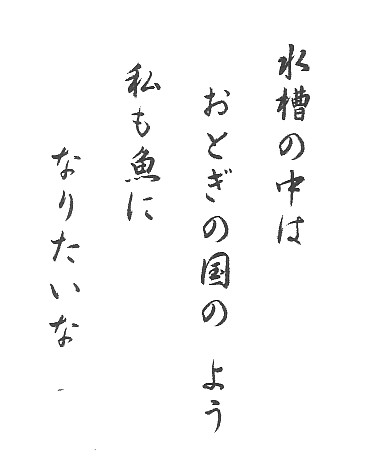 水槽の中は
おとぎの国の よう
私も魚に
なりたいな